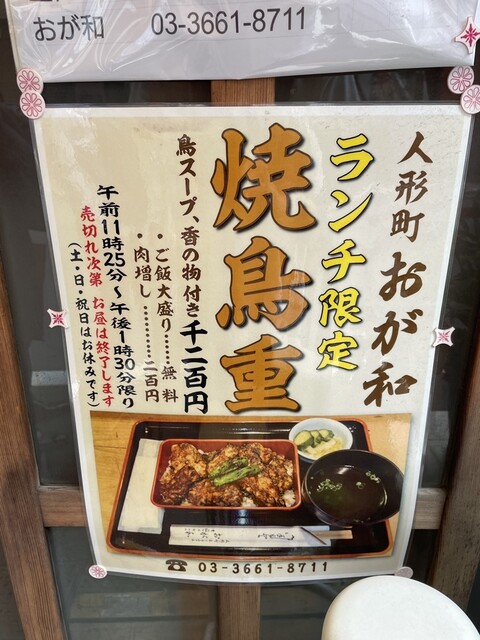 おが和 03-3661-8711
人形町 おが和
ランチ限定
焼鳥重
鳥スープ、香の物付き 千二百円
・ご飯大盛り……無料
・肉増し…………二百円
午前11時25分～午後1時30分限り
売切れ次第 お昼は終了します
(土・日・祝日はお休みです)
☎ 03-3661-8711